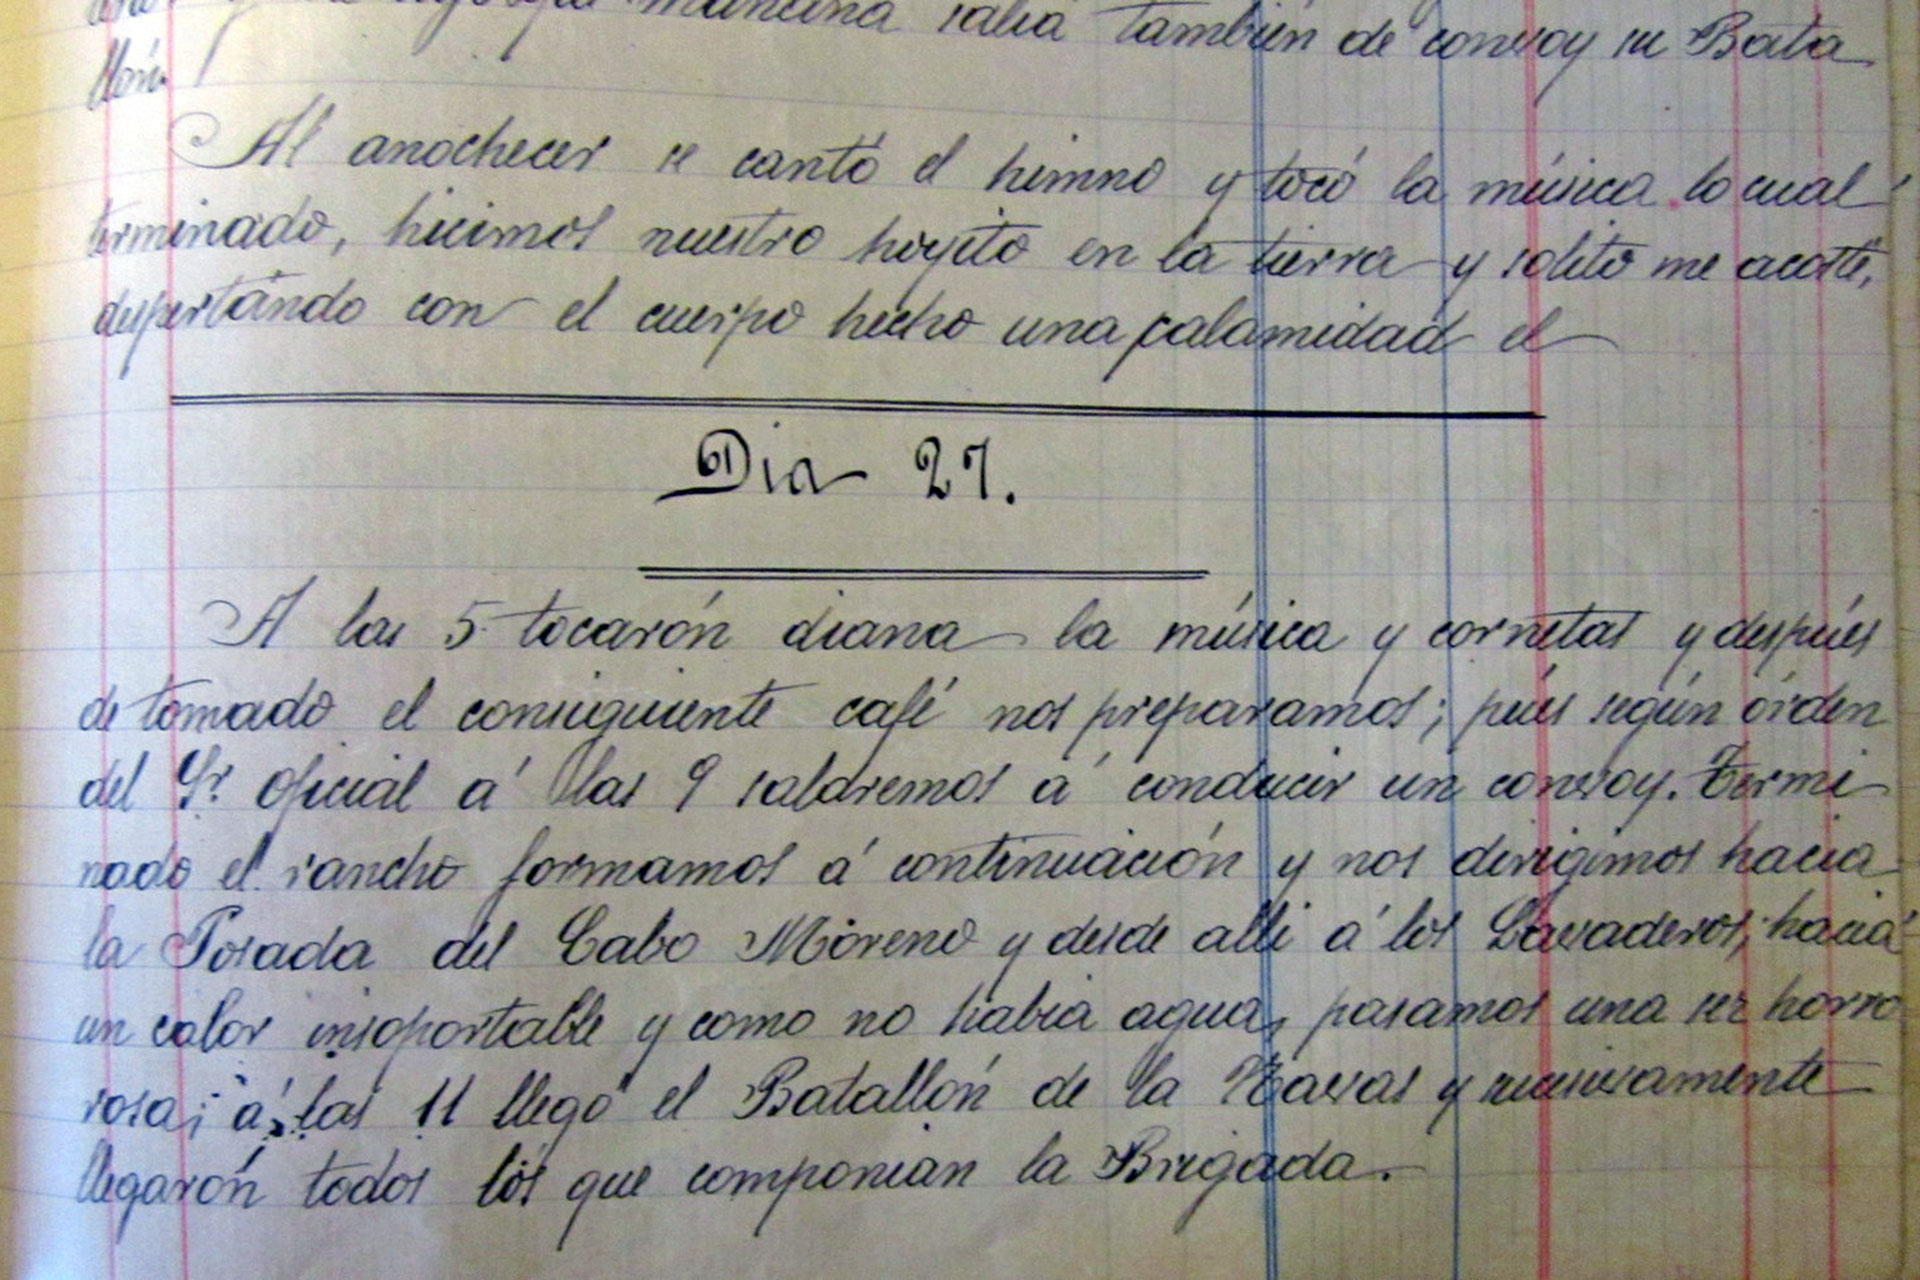 mañana salia también de convoy su Bata
llón.
Al anochecer se cantó el himno y tocó la música lo cual
terminado, hicimos nuestro hoyito en la tierra y solito me acosté,
despertando con el cuerpo hecho una calamidad el
Dia 27.
A las 5 tocarón diana la música y cornetas y despúes
de tomado el consiguiente café nos preparamos; púes según órden
del Sr. Oficial á las 9 saldremos á conducir un convoy. Termi
nado el rancho formamos á continuación y nos dirigimos hacia
la Posada del Cabo Moreno y desde alli á los Lavaderos; hacia
un calor insoportable y como no habia agua, pasamos una sez horro
rosa; á las 11 llegó el Batallón de la Navas y sucesivamente
llegarón todos los que componian la Brigada.